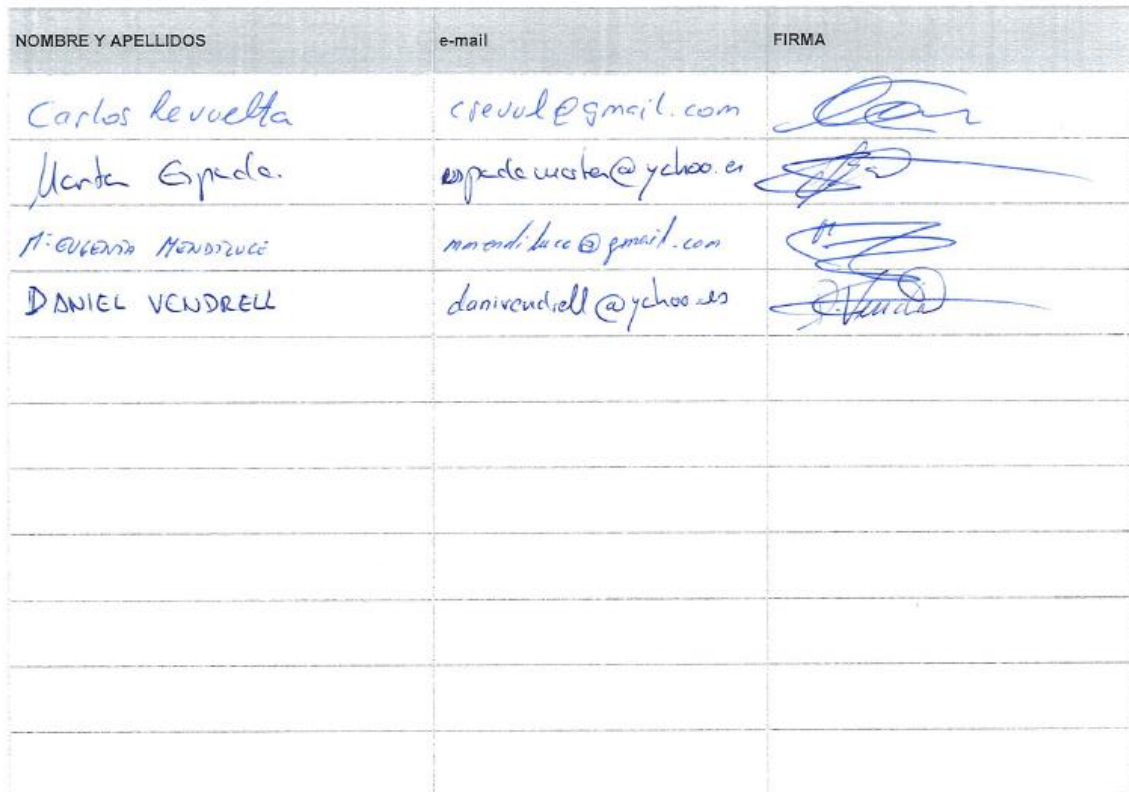 NOMBRE Y APELLIDOS e-mail FIRMA
Carlos Revuelta crevul@gmail.com
Marta Espada. espadamarta@yahoo.es
Mª EUGENIA MENDILUCE mmendiluce@gmail.com
DANIEL VENDRELL danivendrell@yahoo.es